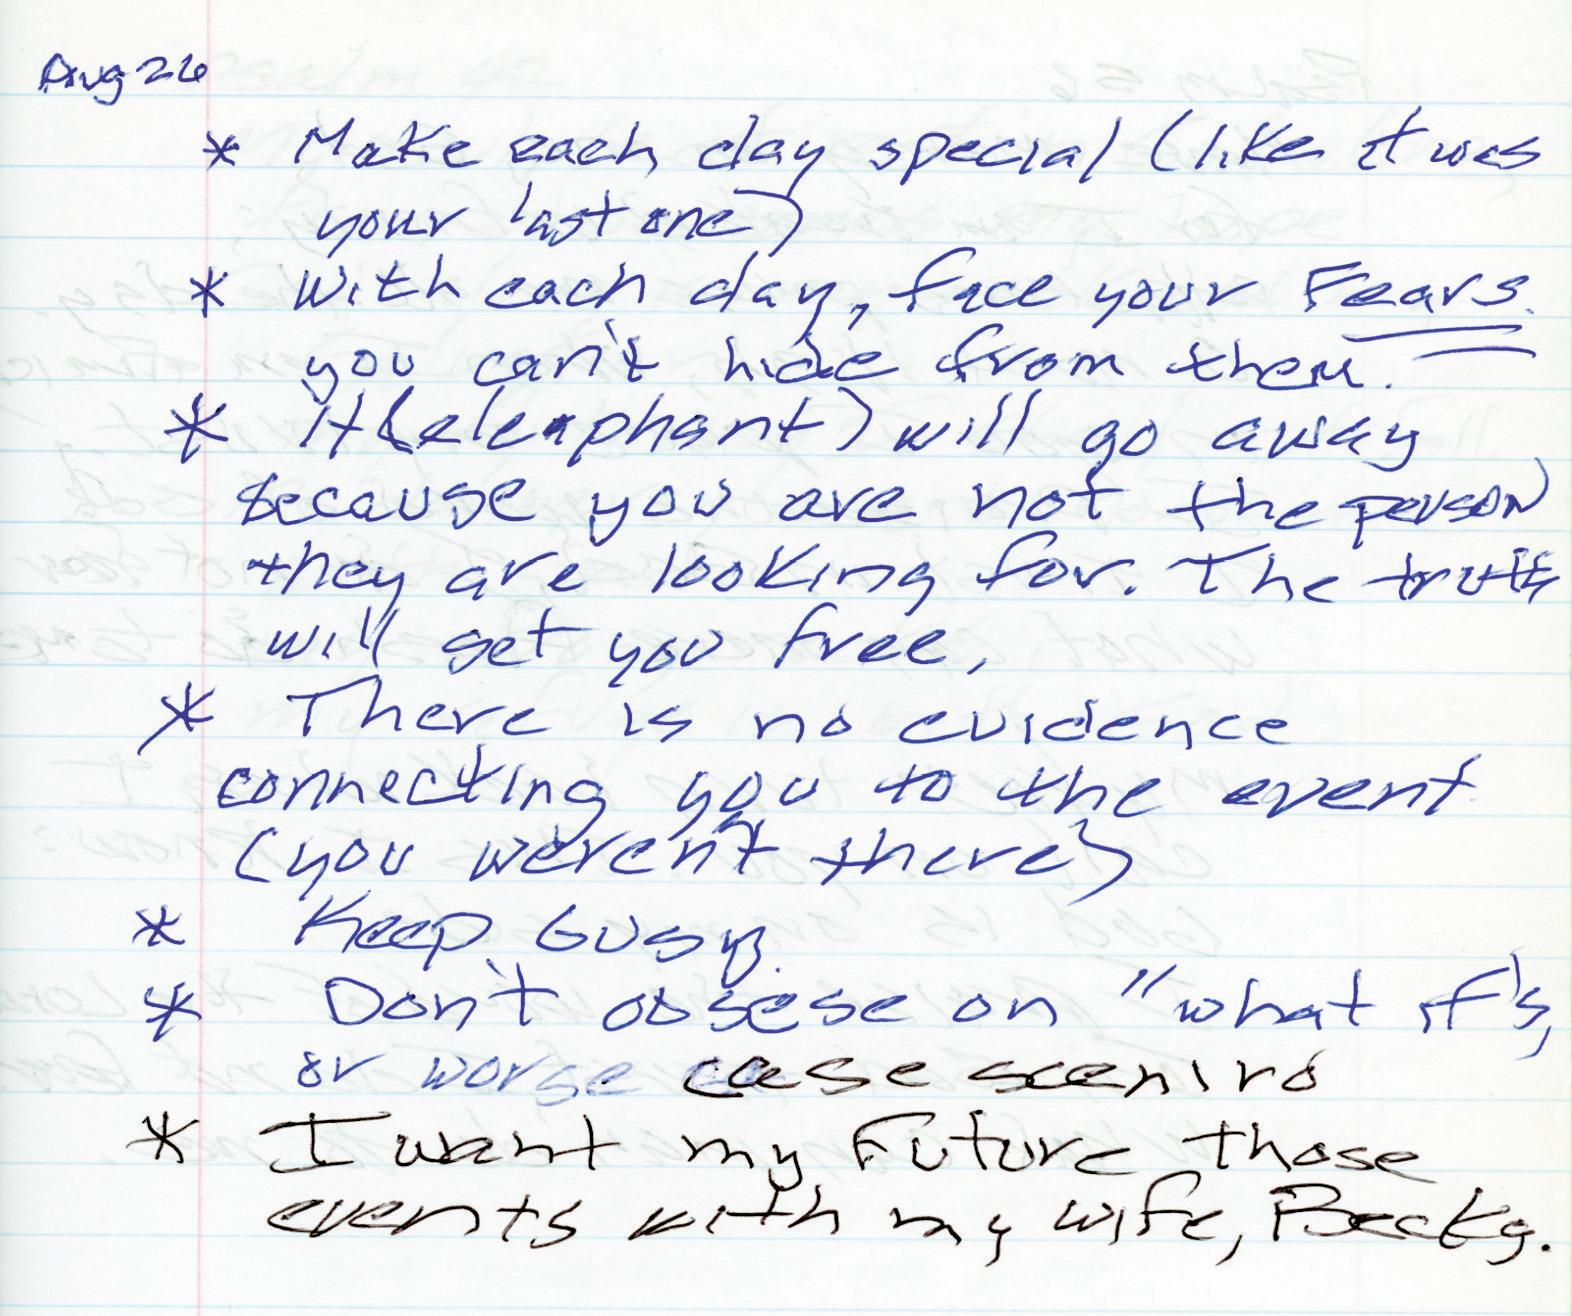 Aug 26
* Make each day special (like it was
your last one)
* With each day, face your Fears.
you can't hide from them.
* It (elephant) will go away
because you are not the person
they are looking for. The truth
will set you free,
* There is no evidence
connecting you to the event
(you weren't there)
* Keep busy.
* Don't obsese on "what if's,
or worse case sceniro
* I want my Future those
events with my wife, Becky.